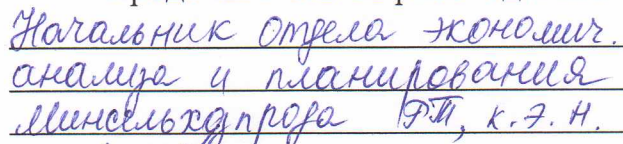 Начальник отдела экономич.
анализа и планирования
Минсельхозпрода РТ, к.э.н.